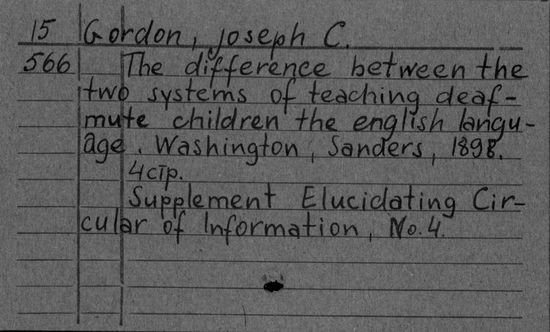 15 Gordon, Joseph C.
566 The difference between the
two systems of teaching deaf-
mute children the english langu-
age. Washington, Sanders, 1898.
4 стр.
Supplement Elucidating Cir-
cular of Information, No. 4.